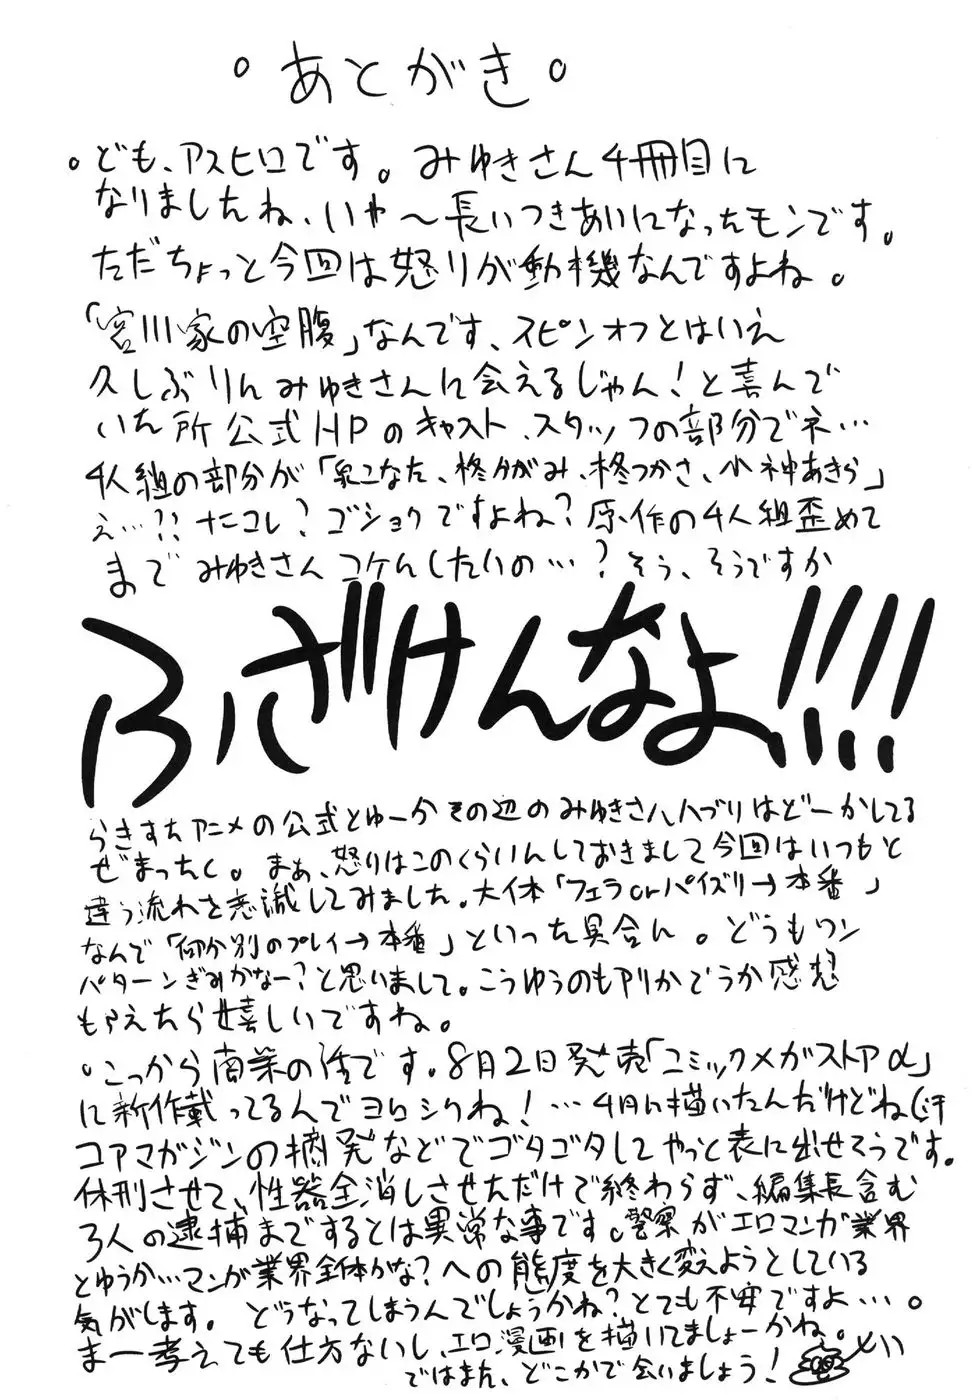 。あとがき。
。ども、アスヒロです。みゆきさん4冊目に
なりましたね、いや～長いつきあいになったモンです。
ただちょっと今回は怒りが動機なんですよね。
「宮川家の空腹」なんです、スピンオフとはいえ
久しぶりにみゆきさんに会えるじゃん!と喜んで
いた所公式HPのキャスト、スタッフの部分でネ…
4人組の部分が「泉こなた、柊かがみ、柊つかさ、小神あきら」
え…?!ナニコレ?ゴショクですよね?原作の4人組歪めて
までみゆきさんコケにしたいの…?そう、そうですか
ふざけんなよ!!!!
らきすたアニメの公式とゆーかその辺のみゆきさんハブりはどーかしてる
ぜまったく。まぁ、怒りはこのくらいにしておきまして今回はいつもと
違う流れを意識してみました。大体「フェラorパイズリ→本番」
なんで「何か別のプレイ→本番」といった具合に。どうもワン
パターンぎみかなー?と思いまして。こうゆうのもアリかどうか感想
もらえたら嬉しいですね。
・こっから商業の話です。8月2日発売「コミックメガストアα」
に新作載ってるんでヨロシクね!…4月に描いたんだけどね(汗
コアマガジンの摘発などでゴタゴタしてやっと表に出せそうです。
休刊させて、性器全消しさせただけで終わらず、編集長含む
3人の逮捕までするとは異常な事です。警察がエロマンガ業界
とゆうか…マンガ業界全体かな?への態度を大きく変えようとしている
気がします。どうなってしまうんでしょうかね?とても不安ですよ…。
まー考えても仕方ないし、エロ漫画を描いてましょーかね。
ではまた、どこかで会いましょう!